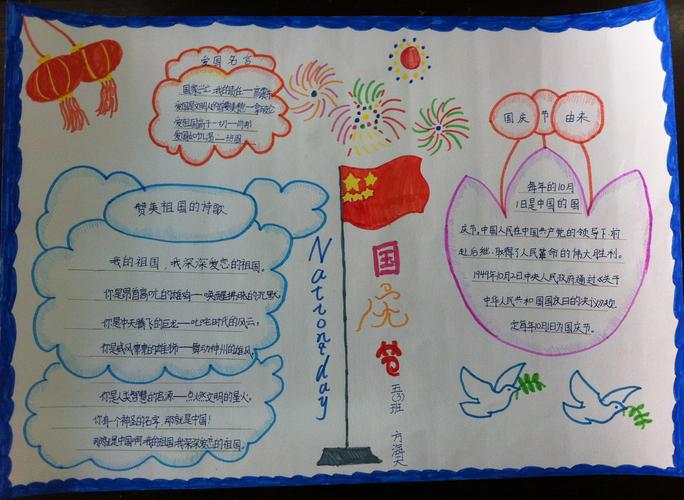 爱国名言
国家兴亡,我的责任——高震东
爱国是文明人的首要美德——拿破仑
爱祖国高于一切——肖邦
爱国如饥渴——班固
赞美祖国的诗歌
我的祖国,我深深爱恋的祖国。
你是昂首高吭的雄鸡——唤醒拂晓的沉默,
你是冲天腾飞的巨龙——叱咤时代的风云,
你是威风凛凛的雄狮——舞动神州的雄风,
你是人类智慧的起源——点燃文明的星火。
你有一个神圣的名字,那就是中国!
那就是中国啊,我的祖国,我深深爱恋的祖国。
National day
国庆节
五(3)班 方海
国庆节由来
每年的10月
1日是中国的国
庆节。中国人民在中国共产党的领导下,前
赴后继,取得了人民革命的伟大胜利。
1949年10月2日中央人民政府通过《关于
中华人民共和国国庆日的决议》规
定每年10月1日为国庆节。